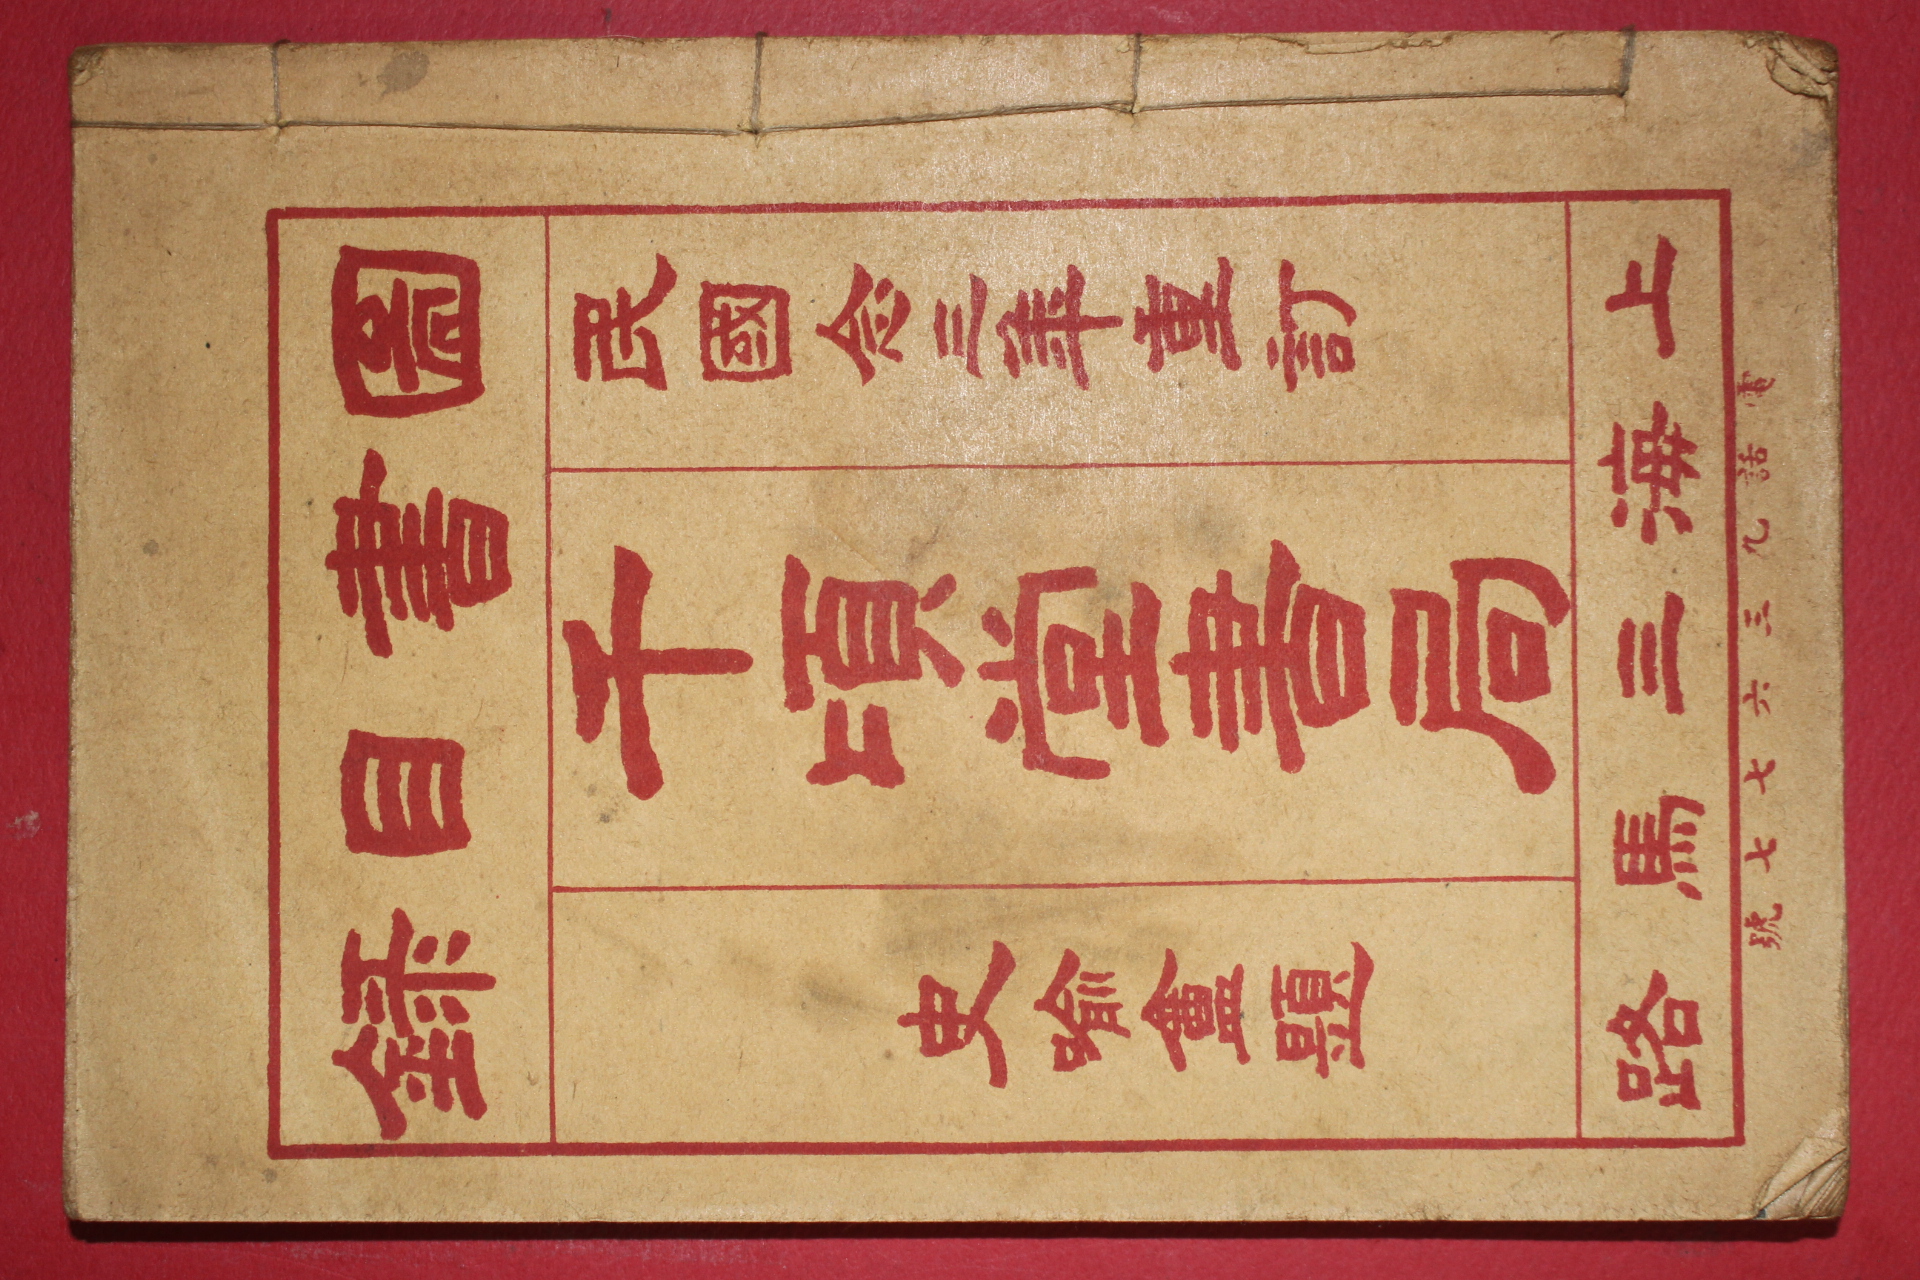 圖書目錄
民國念三年重訂
千頃堂書局
史喻盦題
上海三馬路
電話九三六七七號